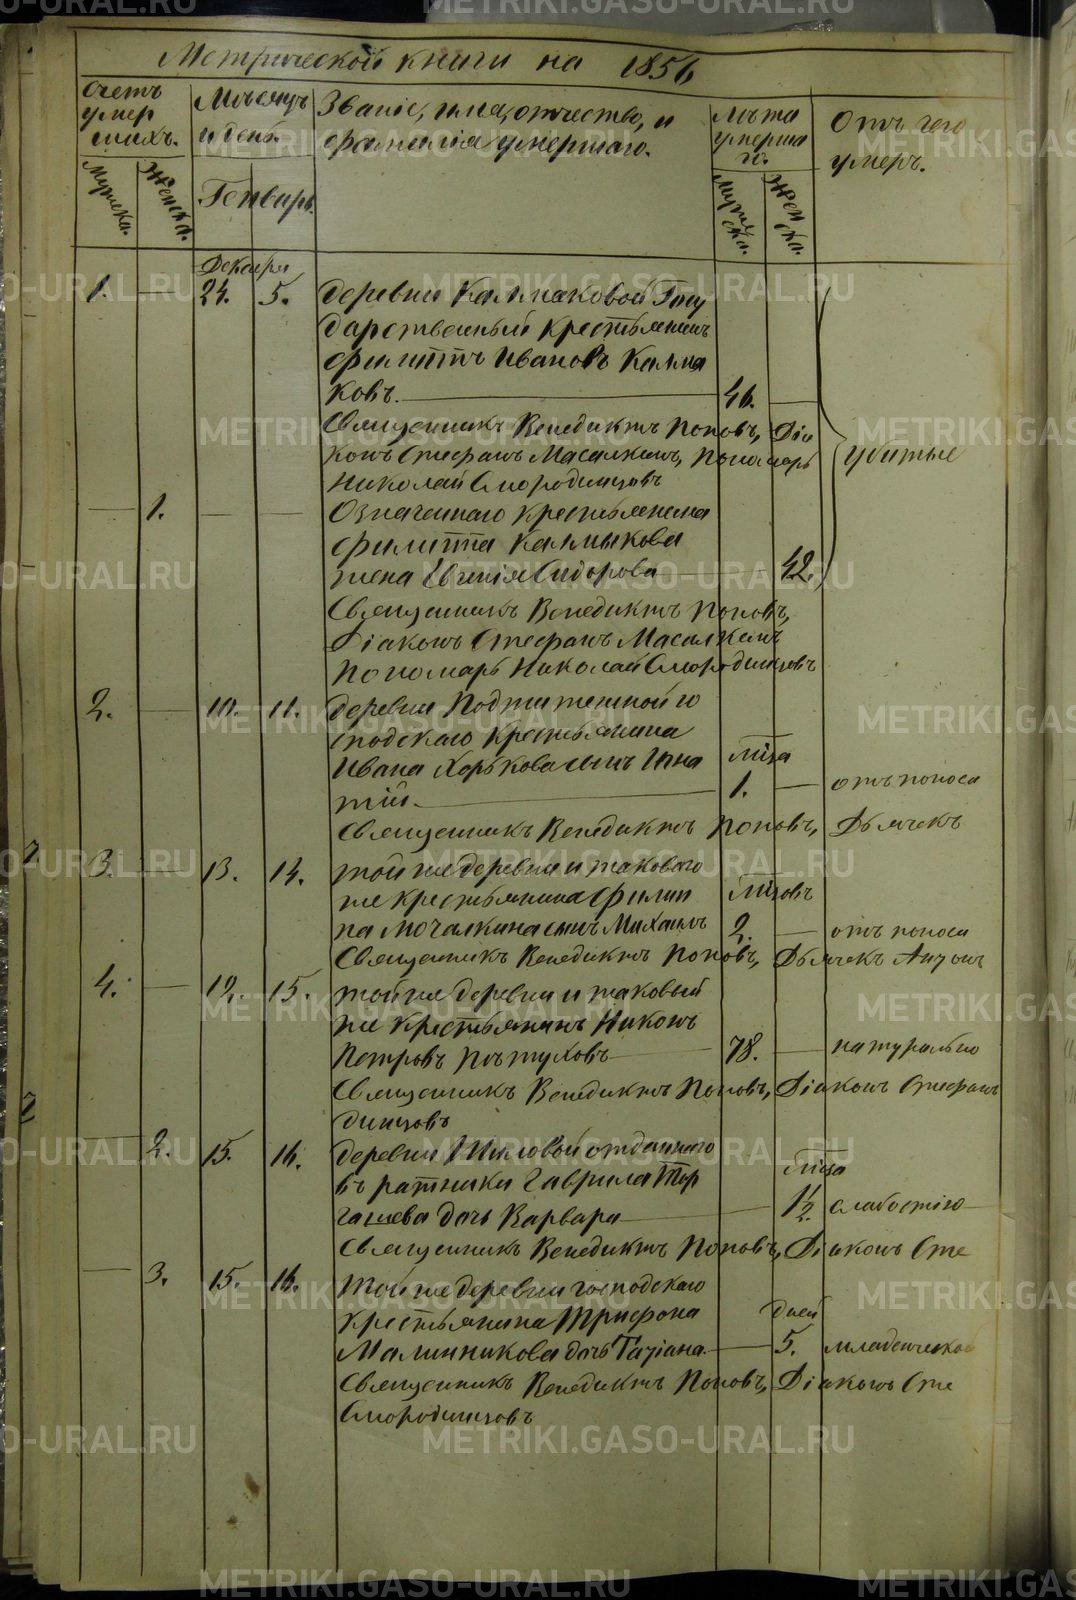 Метрической книги на 1856
Счетъ умер шихъ.
Мѣсяцъ и день.
Званіе, имя, отчество, и фамилія умершаго.
Лѣта умерша го.
Отъ чего умеръ.
Мужска. Женска. Генварь. Мужс ка. Жен ска.
Декабря
1. — 24. 5. Деревни Калмаковой Госу
дарственный крестьянинъ
Филиппъ Ивановъ Калма
ковъ. 46. —
Священникъ Венедиктъ Поповъ, Діа
конъ Стефанъ Масалкинъ, Пономарь
Николай Смородинцовъ
убитые
— 1. — — Означеннаго крестьянина
Филиппа Калмыкова
жена Евгенія Сидорова 42.
Священникъ Венедиктъ Поповъ,
Діаконъ Стефанъ Масалкинъ
Пономарь Николай Смородинцовъ
2. — 10. 11. Деревни го
сподскаго крестьянина
Ивана Хорькова сынъ Игна
тій. мѣсяца 1. — отъ поноса
Священникъ Венедиктъ Поповъ, Дьячекъ
3. — 13. 14. той же деревни и таковаго
же крестьянина Филип
па Мочалкина сынъ Михаилъ мѣсяцовъ 2. — отъ поноса
Священникъ Венедиктъ Поповъ, Дьячекъ
4. — 12. 15. той же деревни и таковый
же крестьянинъ Никонъ
Петровъ Пѣтуховъ 78. — натурально
Священникъ Венедиктъ Поповъ, Діаконъ Стефанъ
динцовъ
— 2. 15. 16. Деревни Шиловой отданнаго
въ ратники Гаврила Тор
гашева дочь Варвара мѣсяца 1½ слабостію
Священникъ Венедиктъ Поповъ, Діаконъ Сте
— 3. 15. 16. Той же деревни господскаго
крестьянина Трифона
Малинникова дочь Татіана. дней 5. младенческой
Священникъ Венедиктъ Поповъ, Діаконъ Сте
Смородинцовъ
METRIKI.GASO-URAL.RU